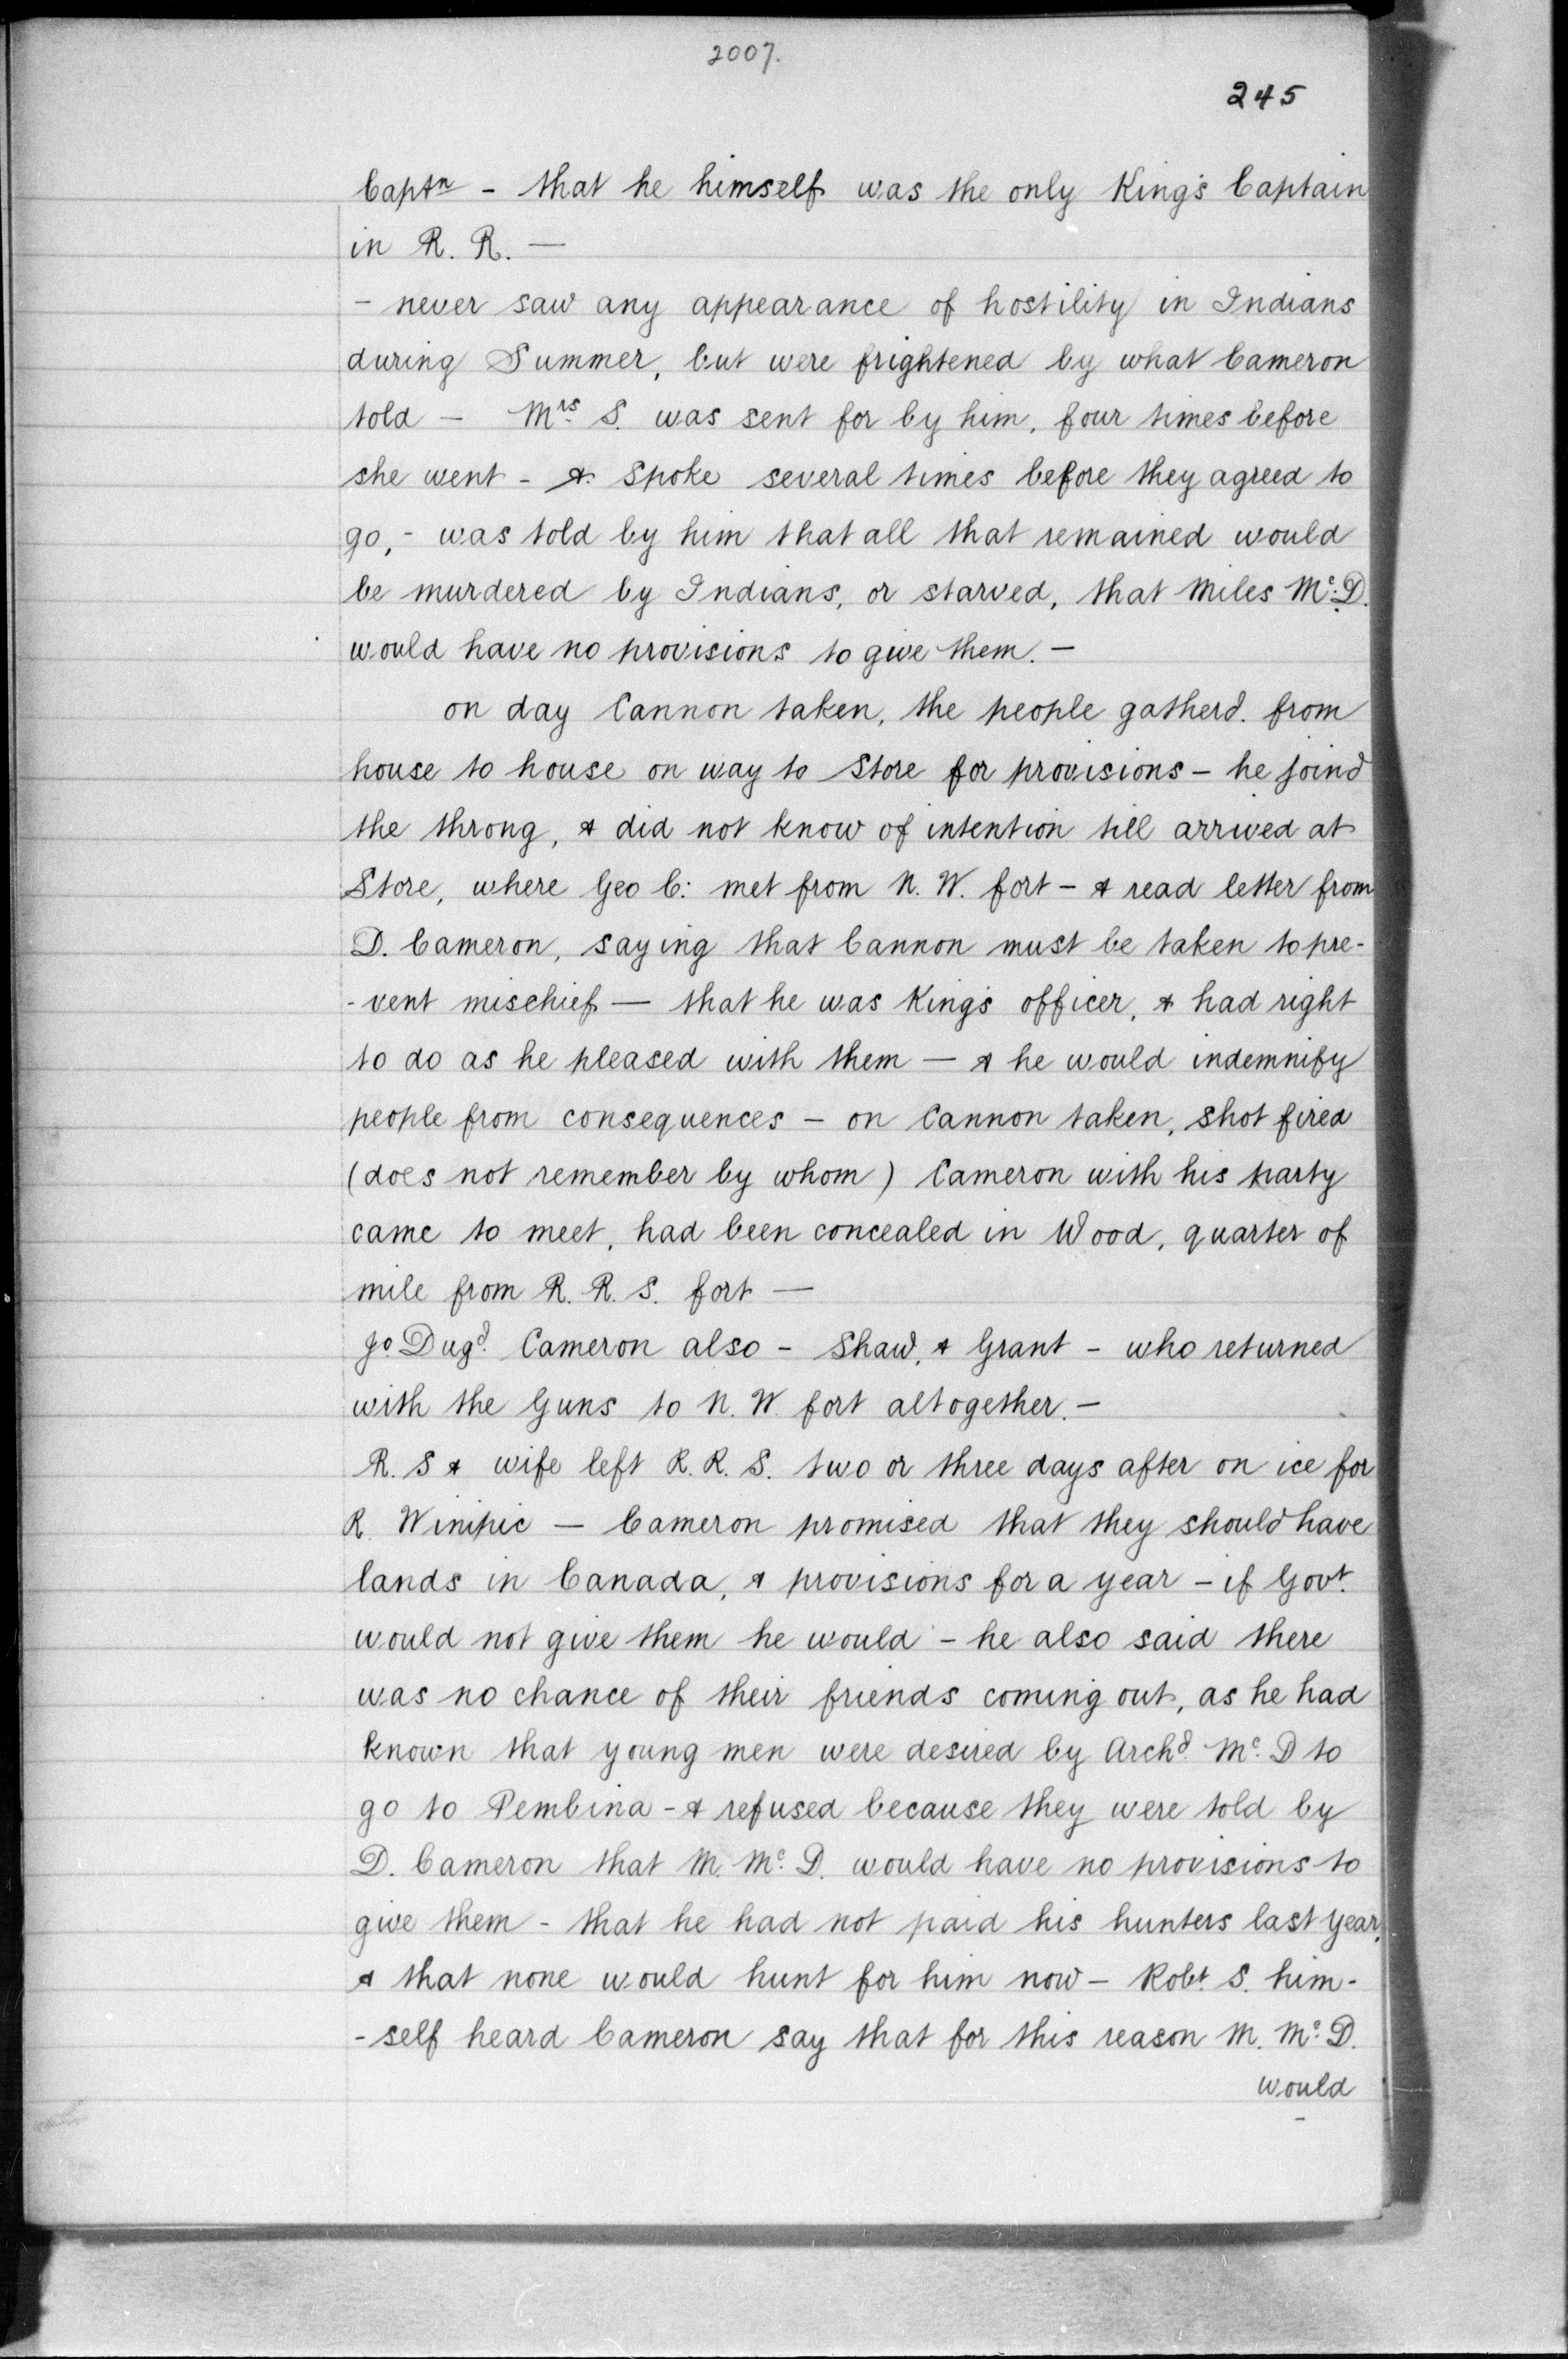 2007.
245
Captn - that he himself was the only King's Captain
in R. R. —
- never saw any appearance of hostility in Indians
during Summer, but were frightened by what Cameron
told — Mrs S. was sent for by him, four times before
she went - & spoke several times before they agreed to
go, - was told by him that all that remained would
be murdered by Indians, or starved, that Miles Mc. D.
would have no provisions to give them. —
on day Cannon taken, the people gatherd. from
house to house on way to Store for provisions - he joind
the throng, & did not know of intention till arrived at
Store, where Geo C: met from N. W. fort - & read letter from
D. Cameron, saying that Cannon must be taken to pre-
- vent mischief — that he was King's officer, & had right
to do as he pleased with them — & he would indemnify
people from consequences - on Cannon taken, shot fired
(does not remember by whom) Cameron with his party
came to meet, had been concealed in Wood, quarter of
mile from R. R. S. fort —
Jo. Dugd. Cameron also - Shaw, & Grant - who returned
with the Guns to N. W. fort altogether. —
R. S & wife left R. R. S. two or three days after on ice for
R. Winipic — Cameron promised that they should have
lands in Canada, & provisions for a year - if Govt.
would not give them he would - he also said there
was no chance of their friends coming out, as he had
known that young men were desired by Archd. Mc. D to
go to Pembina - & refused because they were told by
D. Cameron that M. Mc. D. would have no provisions to
give them - that he had not paid his hunters last year,
& that none would hunt for him now - Robt. S. him-
- self heard Cameron say that for this reason M. Mc. D.
would